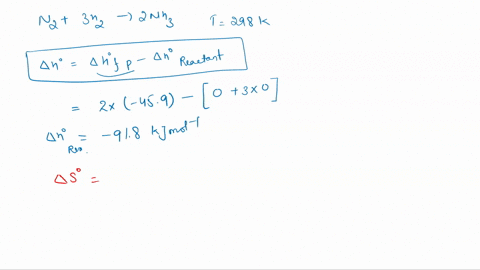 N₂ + 3h₂ → 2Nh₃ T = 298 K
Δh° = Δh°f p − Δh° Reactant
= 2x (−45.9) − [0 + 3x0]
Δh° Rex. = −91.8 kJ mol⁻¹
ΔS° =